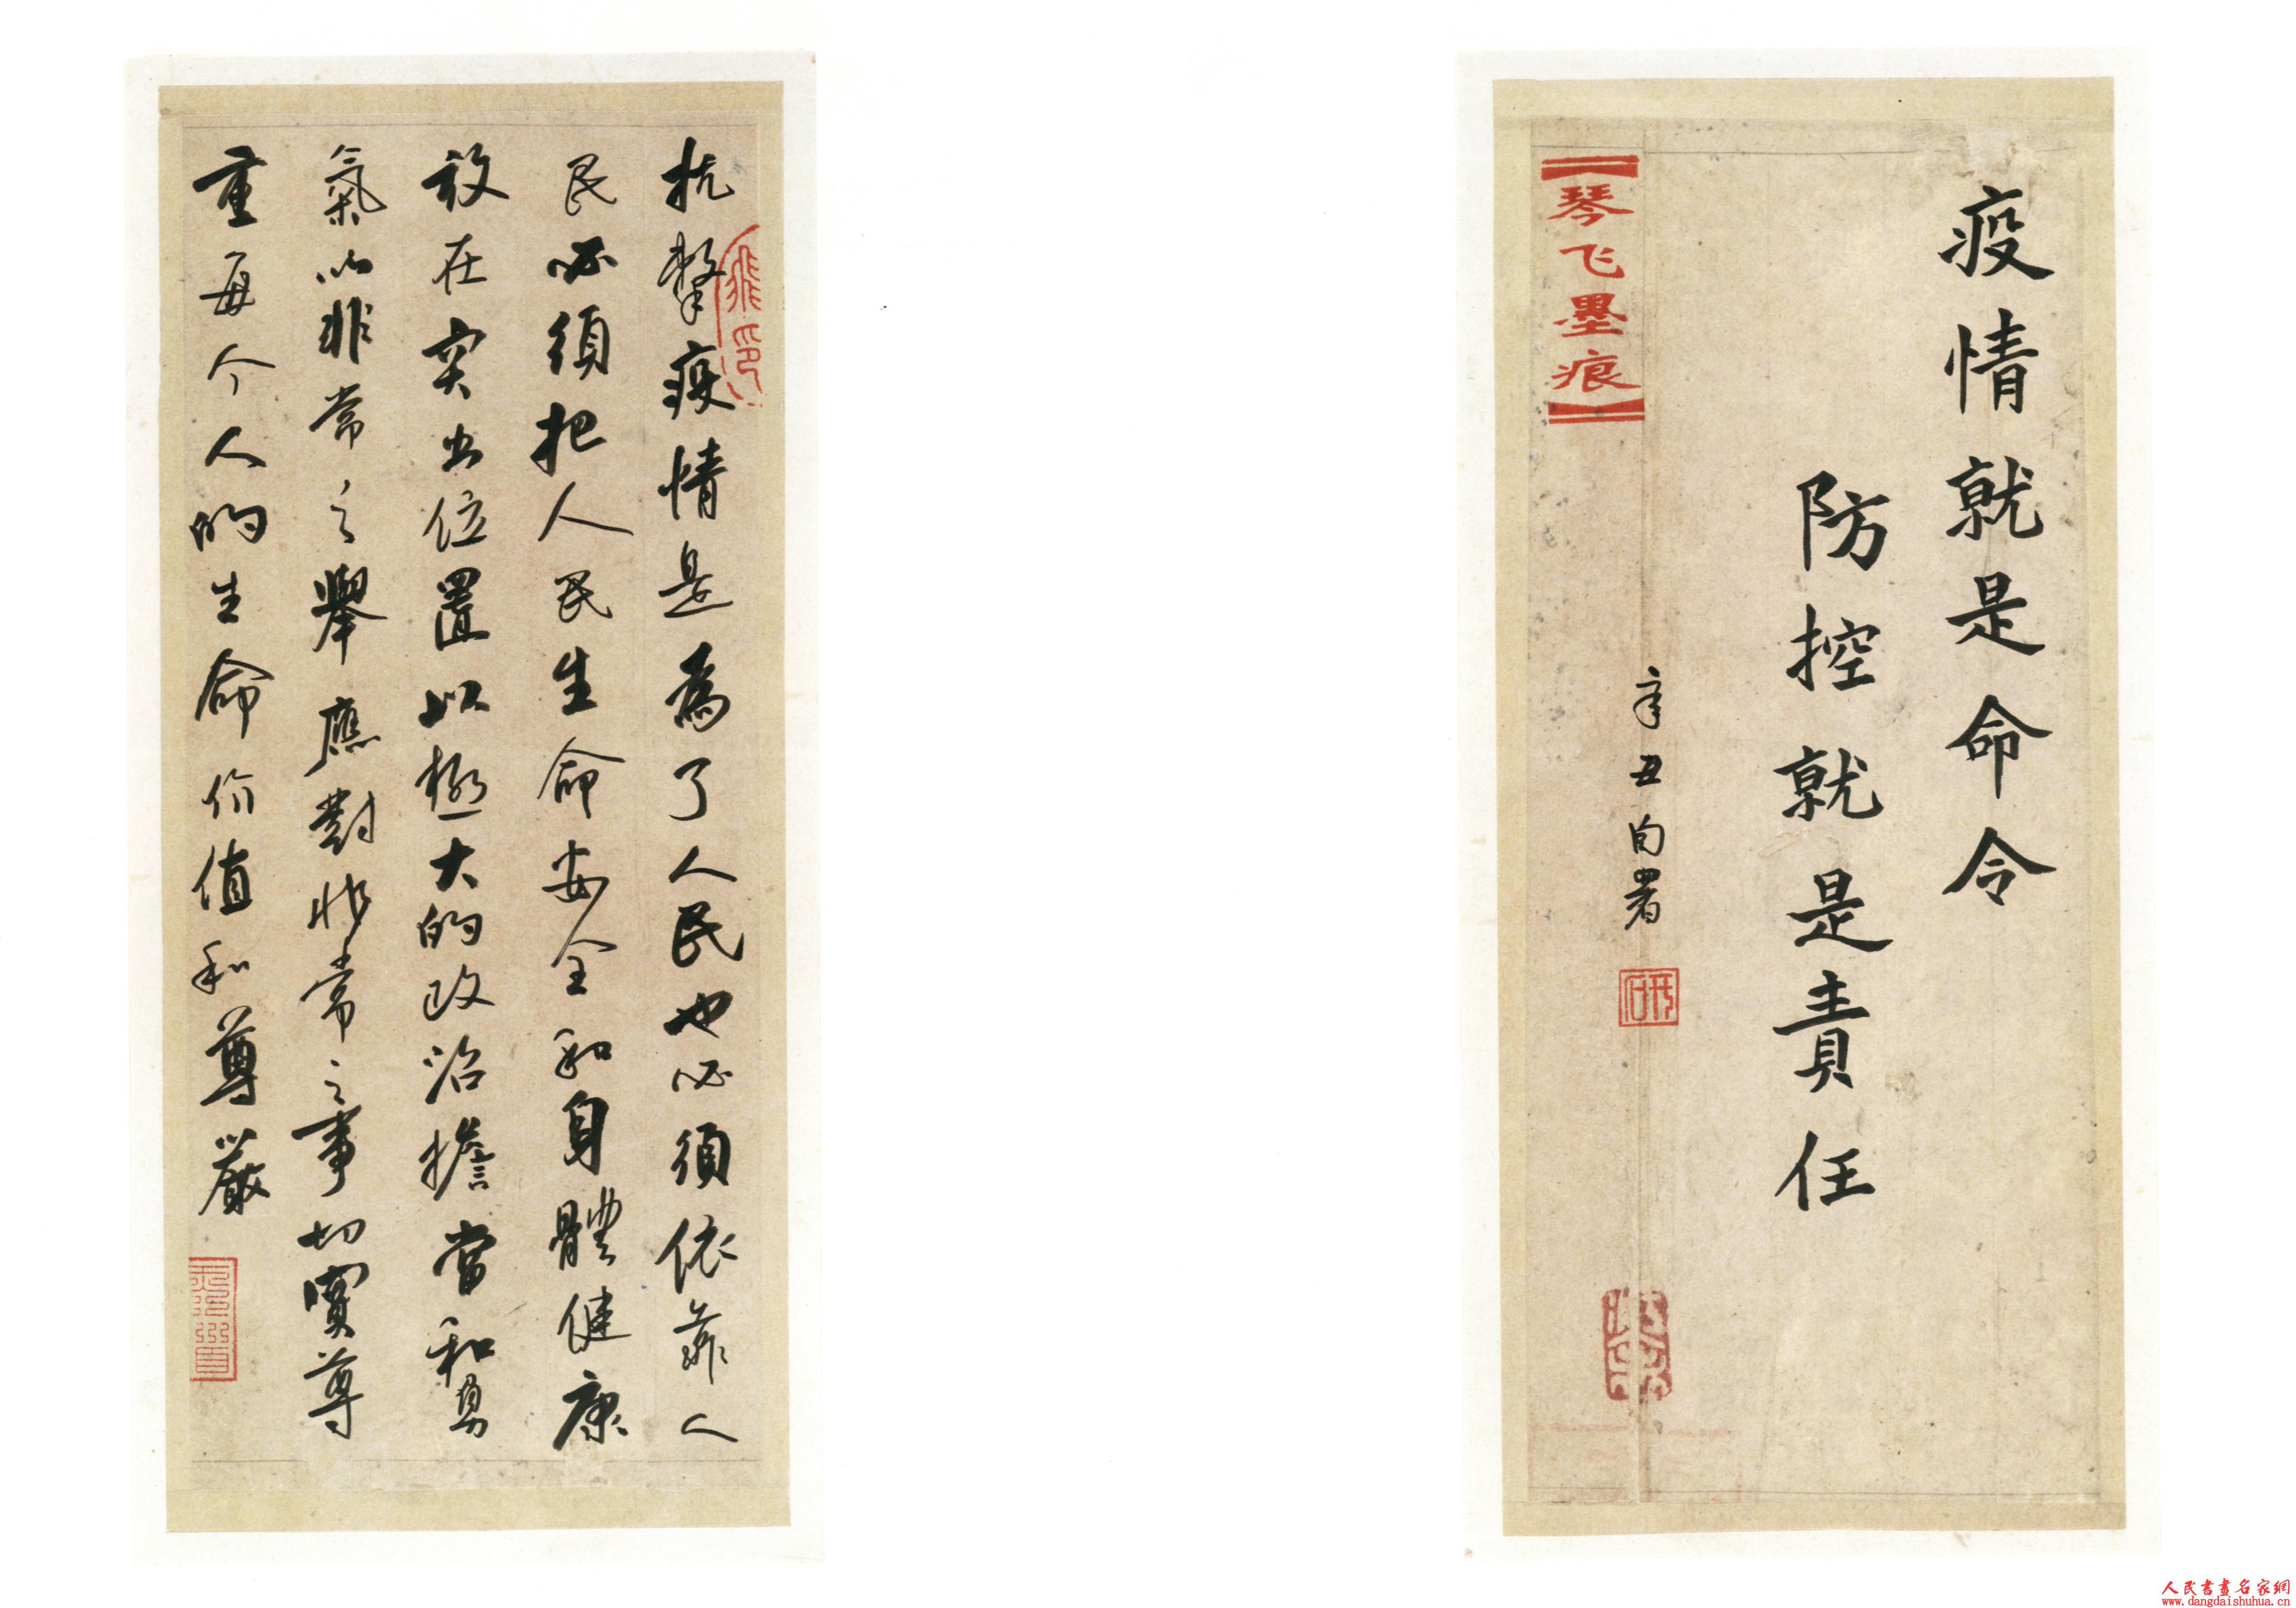 疫情就是命令
防控就是責任
辛丑向署
【琴飞墨痕】
抗擊疫情是為了人民也必須依靠人
民必須把人民生命安全和身體健康
放在突出位置以極大的政治擔當和勇
氣以非常之舉應對非常之事切實尊
重每个人的生命价值和尊嚴
人民書畫名家網
www.dangdaishuhua.cn